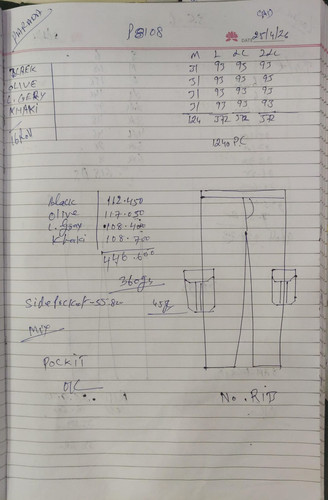 P8108
25/4/26
M L XL 2XL
BLACK 31 93 93 93
OLIVE 31 93 93 93
L. GERY 31 93 93 93
KHAKI 31 93 93 93
124 372 372 372
16 Roll
1240 PC
black 112.450
Olive 117.050
L. gray 108.400
Khaki 108.700
446.600
360gm
Side Pocket - 55.80
POCKIT
OK
No. RIB